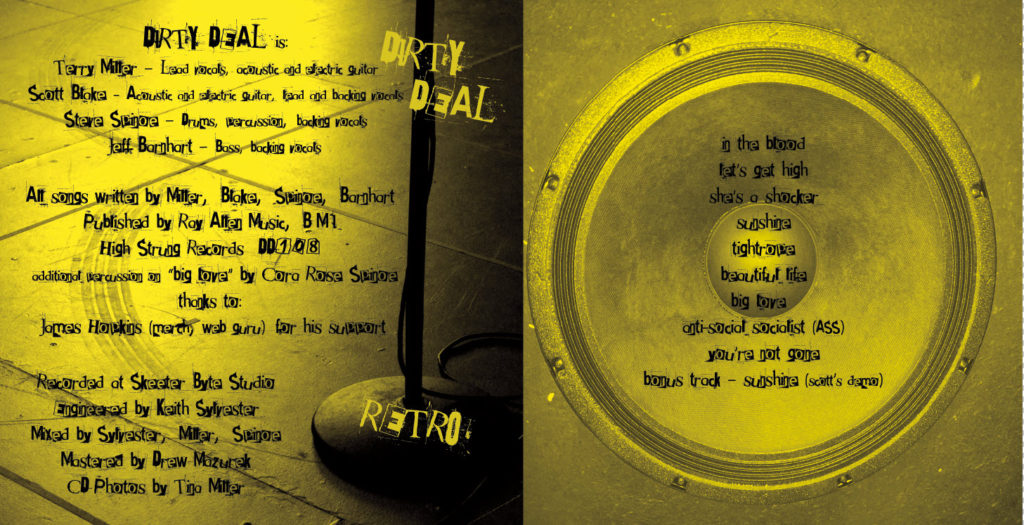 DIRTY DEAL is:
Terry Miller – Lead vocals, acoustic and electric guitar
Scott Blake – Acoustic and electric guitar, lead and backing vocals
Steve Spinoe – Drums, percussion, backing vocals
Jeff Barnhart – Bass, backing vocals
All songs written by Miller, Blake, Spinoe, Barnhart
Published by Roy Allen Music, BMI
High Strung Records DD108
additional percussion on "big love" by Cora Rose Spinoe
thanks to:
James Hopkins (merch, web guru) for his support
Recorded at Skeeter Byte Studio
Engineered by Keith Sylvester
Mixed by Sylvester, Miller, Spinoe
Mastered by Drew Mazurek
CD Photos by Tina Miller
DIRTY
DEAL
RETRO.
in the blood
let's get high
she's a shocker
sunshine
tightrope
beautiful life
big love
anti-social socialist (ASS)
you're not gone
bonus track – sunshine (scott's demo)